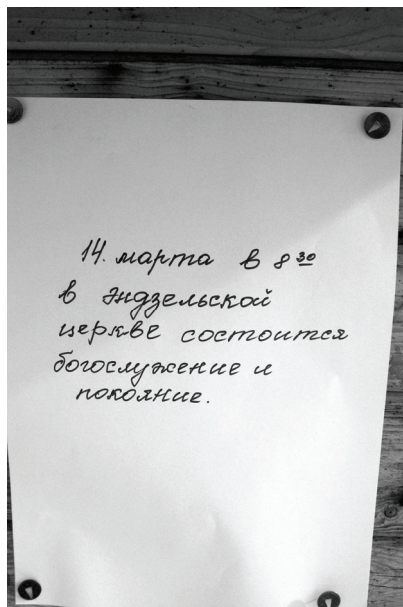 14. марта в 8 30
в эндзельской
церкве состоится
богослужение и
покояние.